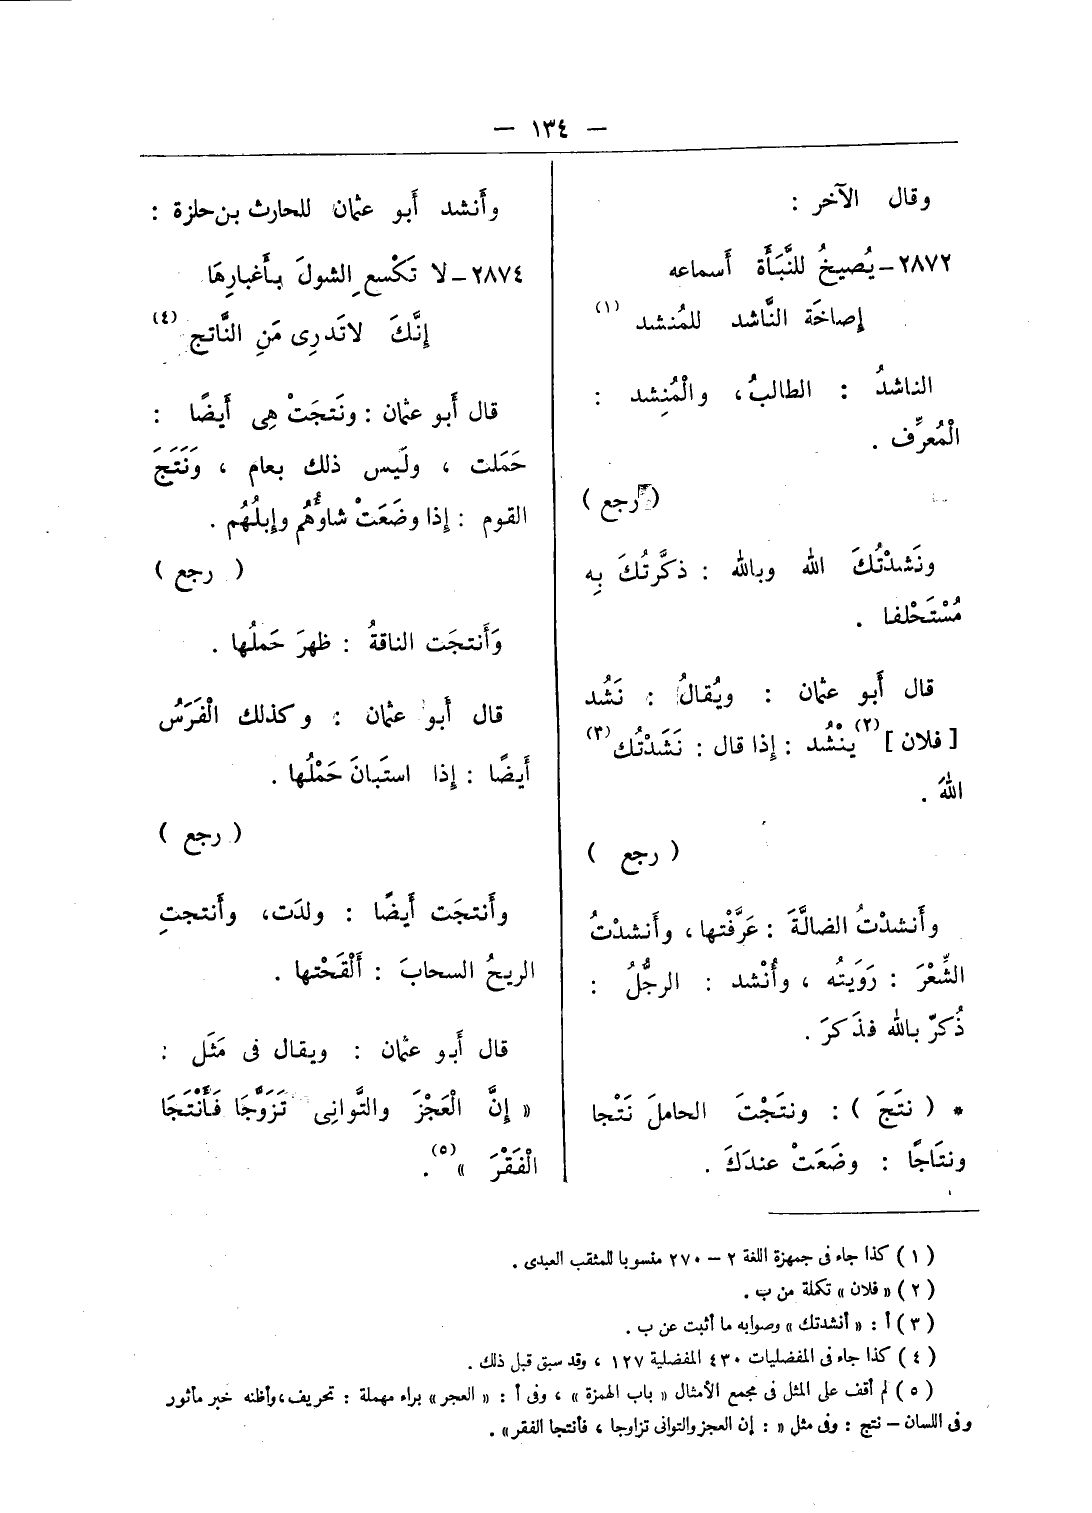 — ١٣٤ —
وقال الآخر :
٢٨٧٢ – يُصيخُ للنَّبَأَة أَسماعه
إصاخَة النَّاشد للمُنشد (١)
الناشدُ : الطالبُ ، والْمُنِشد :
الْمُعرِّف .
( رجع )
ونَشدْتُكَ الله وبالله : ذكَّرتُكَ بِه
مُسْتَحْلفا .
قال أَبو عثمان : ويُقالُ : نَشُد
[ فلان ] (٢) ينْشُد : إذا قال : نَشَدْتُك (٣)
اللهَ .
( رجع )
وأَنشدْتُ الضالَّةَ : عَرَّفْتها ، وأَنشدْتُ
الشِّعْرَ : رَوَيتُه ، وأُنْشد : الرجُلُ :
ذُكرّ بالله فذَكرَ .
* ( نتَجَ ) : ونتَجْتَ الحاملَ نَتْجا
ونتَاجًا : وضَعَتْ عندَكَ .
وأَنشد أَبو عثمان للحارث بن حلزة :
٢٨٧٤ – لا تَكْسعِ الشولَ بأَغبارِهَا
إنَّكَ لاتَدرِى مَنِ النَّاتج (٤)
قال أَبو عثمان : ونَتجَتْ هِى أَيضًا :
حَمَلت ، ولَيس ذلك بعام ، وَنَتَجَ
القوم : إذا وضَعَتْ شاؤُهُم وإبلُهُم .
( رجع )
وَأَنتجَت الناقةُ : ظهرَ حَملُها .
قال أَبو عثمان : وكذلك الْفَرَسُ
أَيضًا : إذا استَبانَ حَمْلُها .
( رجع )
وأَنتجَت أَيضًا : ولدَت ، وأَنتجتِ
الريحُ السحابَ : أَلْقَحْتها .
قال أَبو عثمان : ويقال فى مَثَل :
« إنَّ الْعَجْزَ والتَّوانِى تَزَوَّجَا فَأَنْتَجَا
الْفَقْرَ » (٥) .
( ١ ) كذا جاء فى جمهزة اللغة ٢ – ٢٧٠ منسوبا للمثقب العبدى .
( ٢ ) « فلان » تكملة من ب .
( ٣ ) أ : « أنشدتك » وصوابه ما أثبت عن ب .
( ٤ ) كذا جاء فى المفضليات ٤٣٠ المفضلية ١٢٧ ، وقد سبق قبل ذلك .
( ٥ ) لم أقف على المثل فى مجمع الأمثال « باب الهمزة » ، وفى أ : « العجر » براء مهملة : تحريف ، وأظنه خبر مأثور
وفى اللسان – نتج : وفى مثل « : إن العجز والتوانى تزاوجا ، فأنتجا الفقر » .